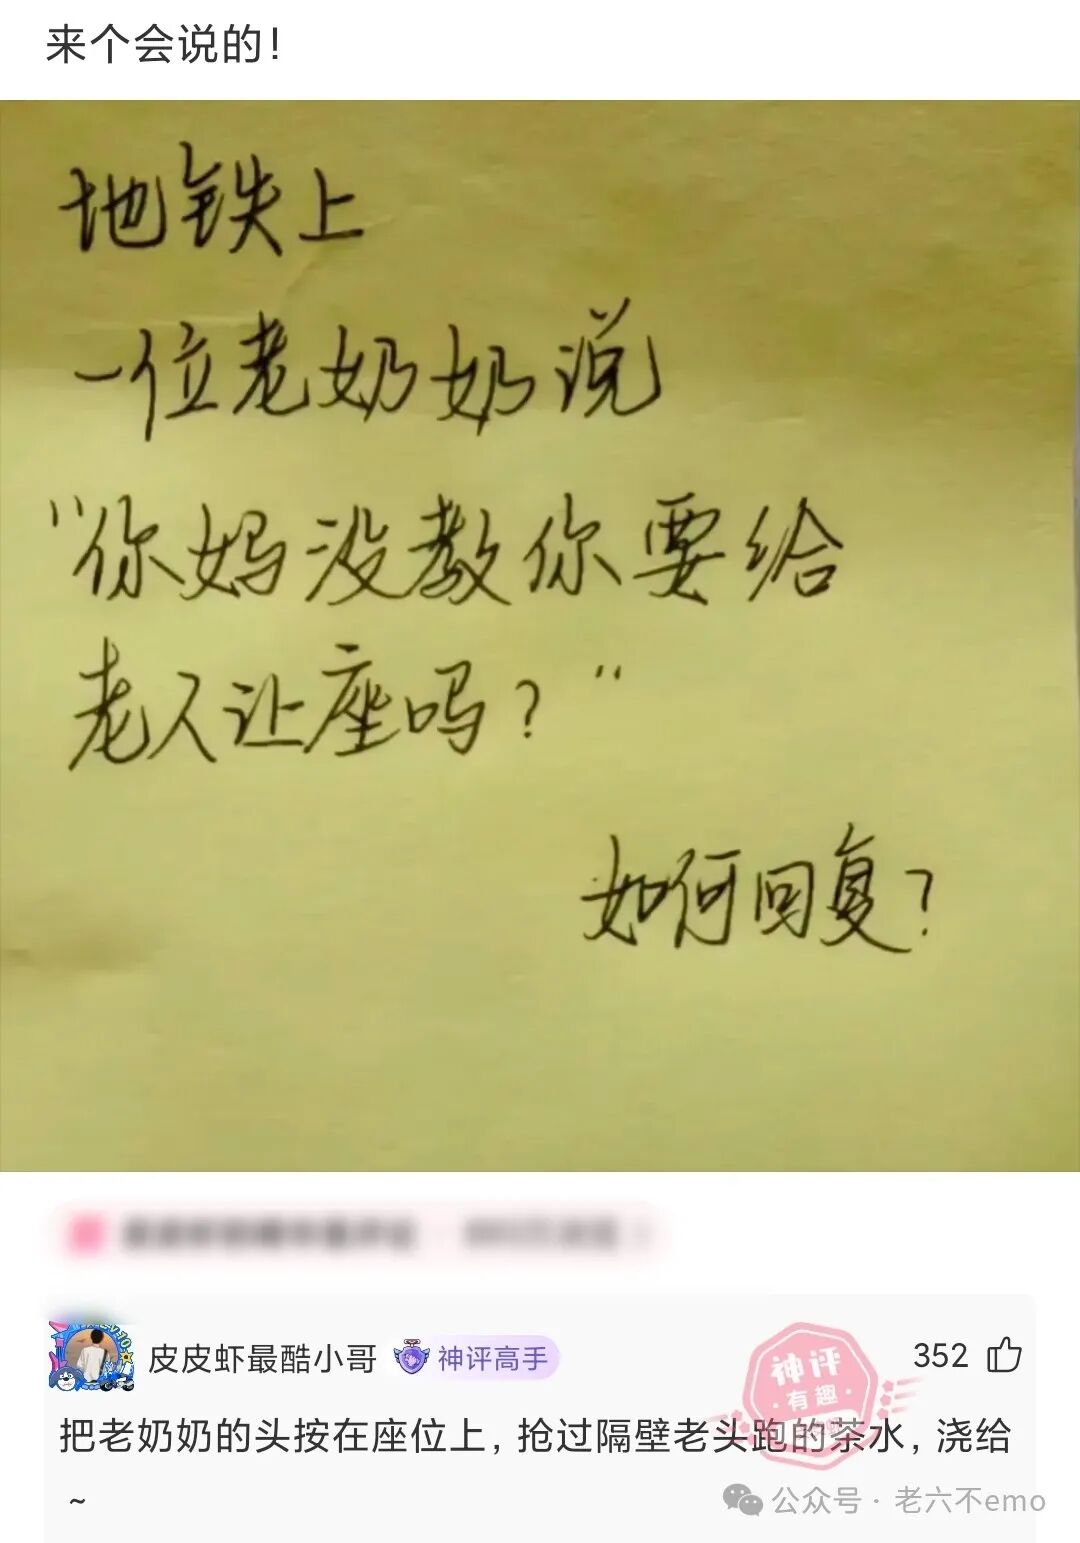 来个会说的!
地铁上
一位老奶奶说
"你妈没教你要给
老人让座吗?"
如何回复?
皮皮虾最酷小哥 神评高手 352
神评
有趣
把老奶奶的头按在座位上,抢过隔壁老头跑的茶水,浇给
~
公众号 · 老六不emo